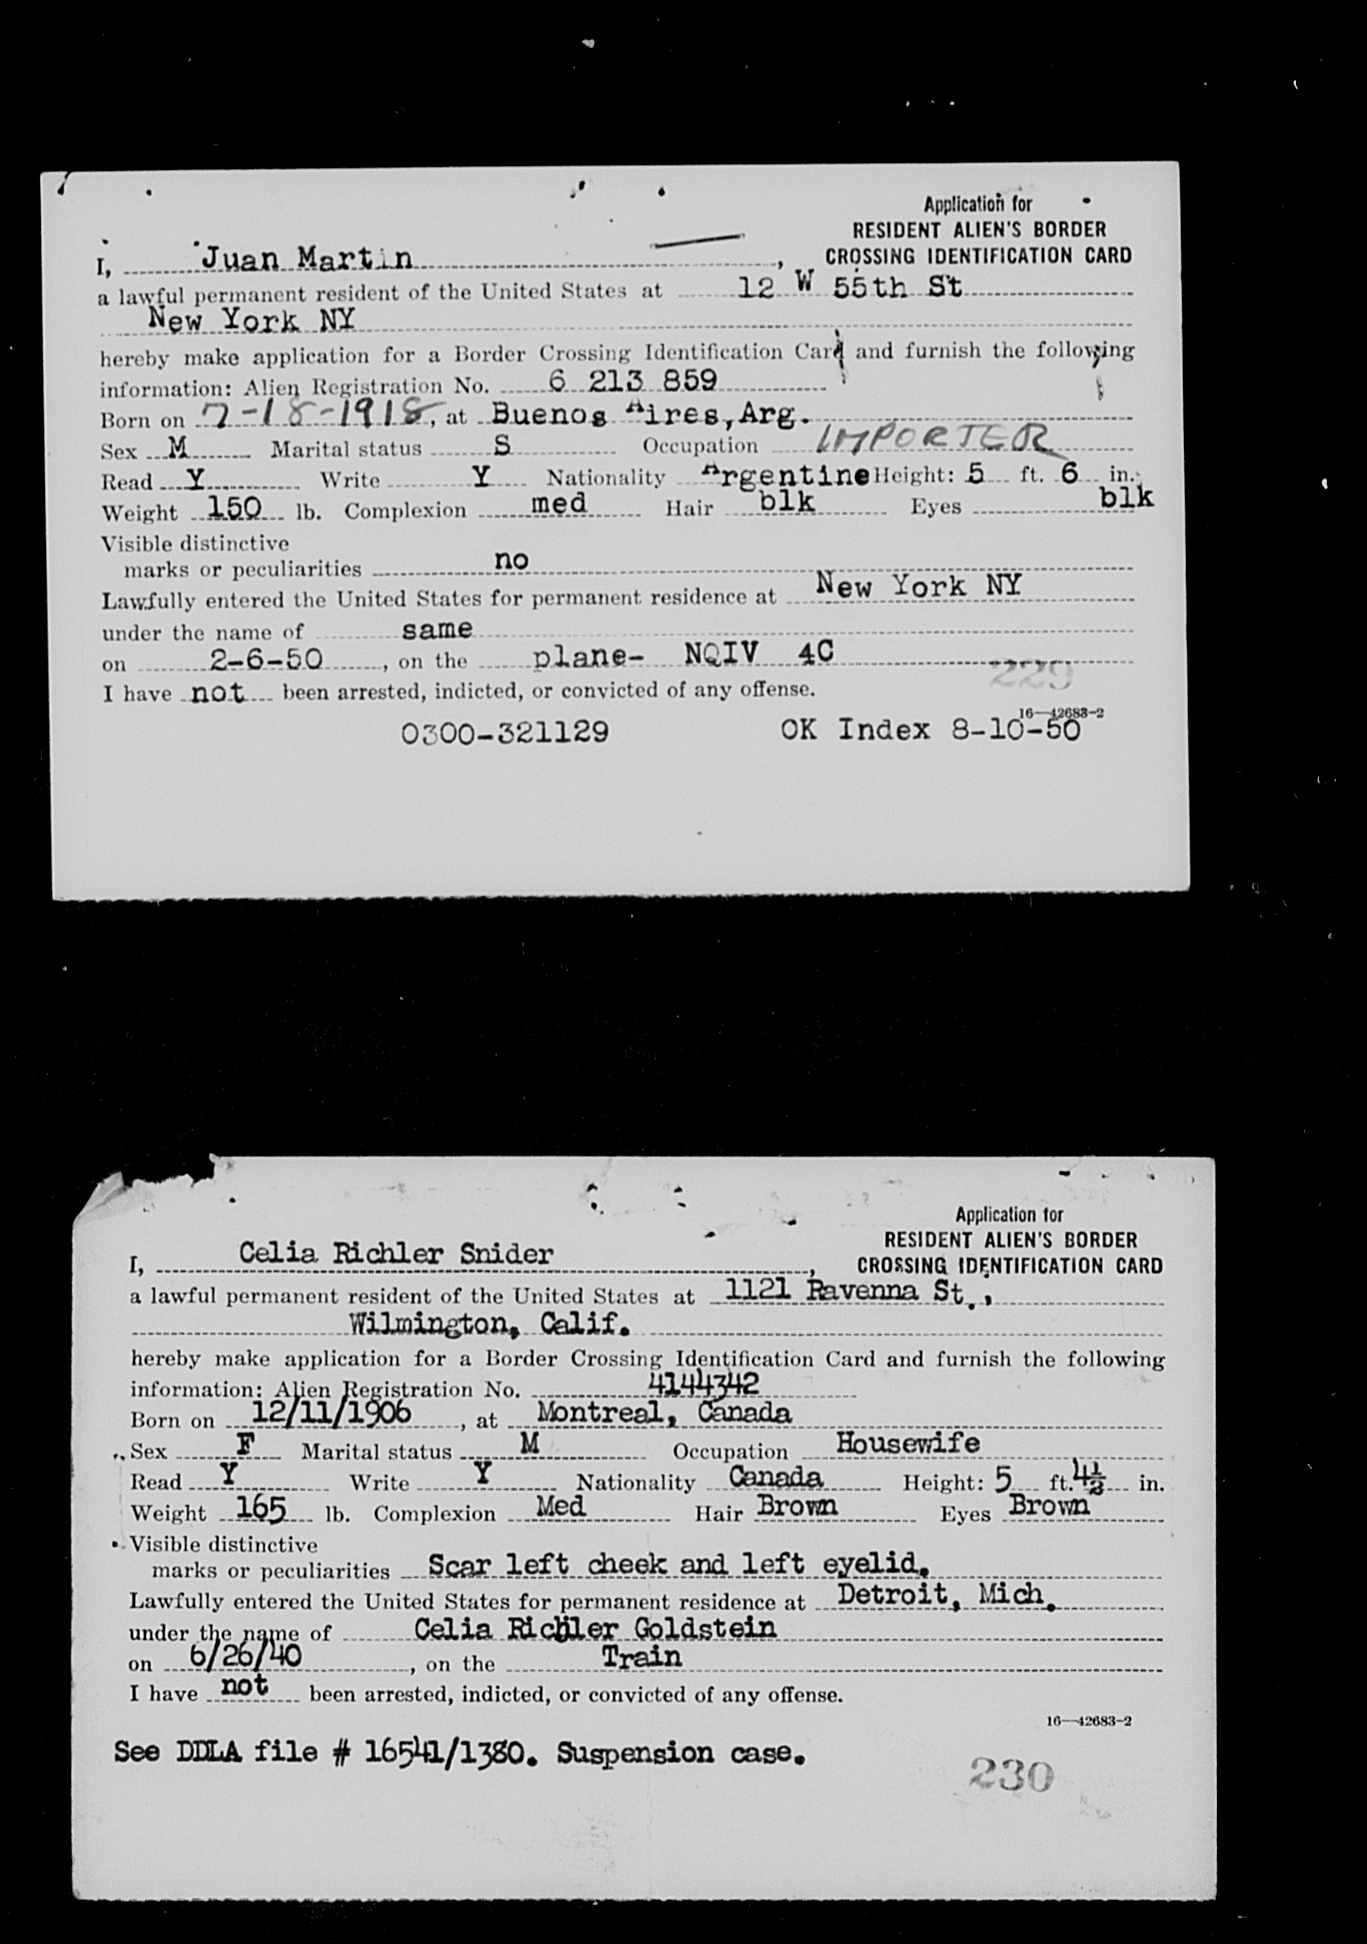 Application for
RESIDENT ALIEN'S BORDER
CROSSING IDENTIFICATION CARD
I, Juan Martin,
a lawful permanent resident of the United States at 12 W 55th St
New York NY
hereby make application for a Border Crossing Identification Card and furnish the following
information: Alien Registration No. 6 213 859
Born on 7-18-1918, at Buenos Aires, Arg.
Sex M Marital status S Occupation IMPORTER
Read Y Write Y Nationality Argentine Height: 5 ft. 6 in.
Weight 150 lb. Complexion med Hair blk Eyes blk
Visible distinctive
marks or peculiarities no
Lawfully entered the United States for permanent residence at New York NY
under the name of same
on 2-6-50, on the plane- NQIV 4C
229
I have not been arrested, indicted, or convicted of any offense.
16—42683-2
0300-321129 OK Index 8-10-50
Application for
RESIDENT ALIEN'S BORDER
CROSSING IDENTIFICATION CARD
I, Celia Richler Snider,
a lawful permanent resident of the United States at 1121 Ravenna St.,
Wilmington, Calif.
hereby make application for a Border Crossing Identification Card and furnish the following
information: Alien Registration No. 4144342
Born on 12/11/1906, at Montreal, Canada
Sex F Marital status M Occupation Housewife
Read Y Write Y Nationality Canada Height: 5 ft. 4½ in.
Weight 165 lb. Complexion Med Hair Brown Eyes Brown
Visible distinctive
marks or peculiarities Scar left cheek and left eyelid.
Lawfully entered the United States for permanent residence at Detroit, Mich.
under the name of Celia Richler Goldstein
on 6/26/40, on the Train
I have not been arrested, indicted, or convicted of any offense.
16—42683-2
See DDLA file # 16541/1380. Suspension case.
230